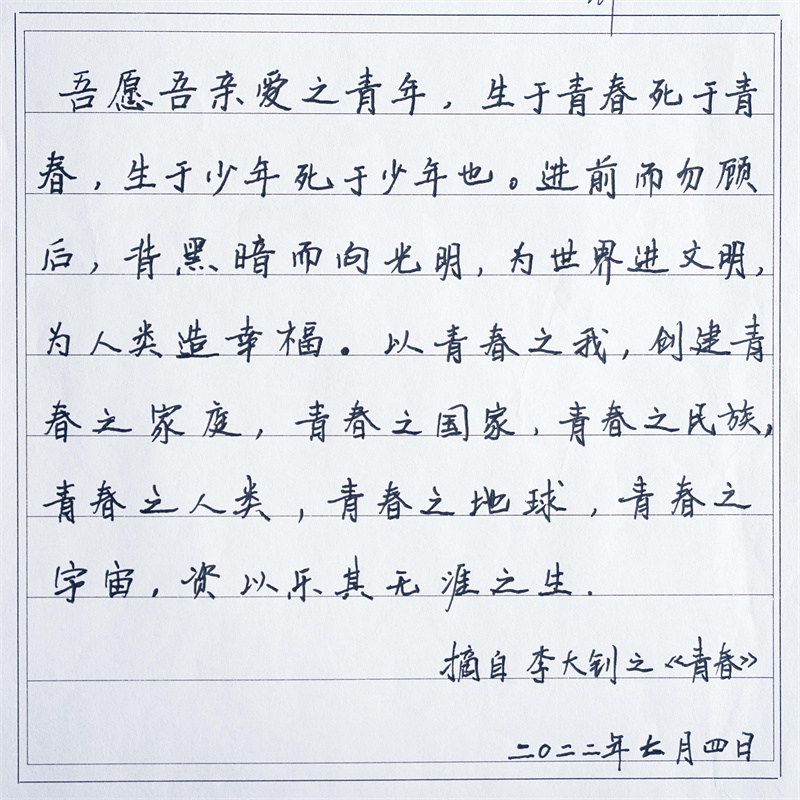 吾愿吾亲爱之青年，生于青春死于青
春，生于少年死于少年也。进前而勿顾
后，背黑暗而向光明，为世界进文明，
为人类造幸福。以青春之我，创建青
春之家庭，青春之国家，青春之民族，
青春之人类，青春之地球，青春之
宇宙，资以乐其无涯之生．
摘自李大钊之《青春》
二〇二二年七月四日